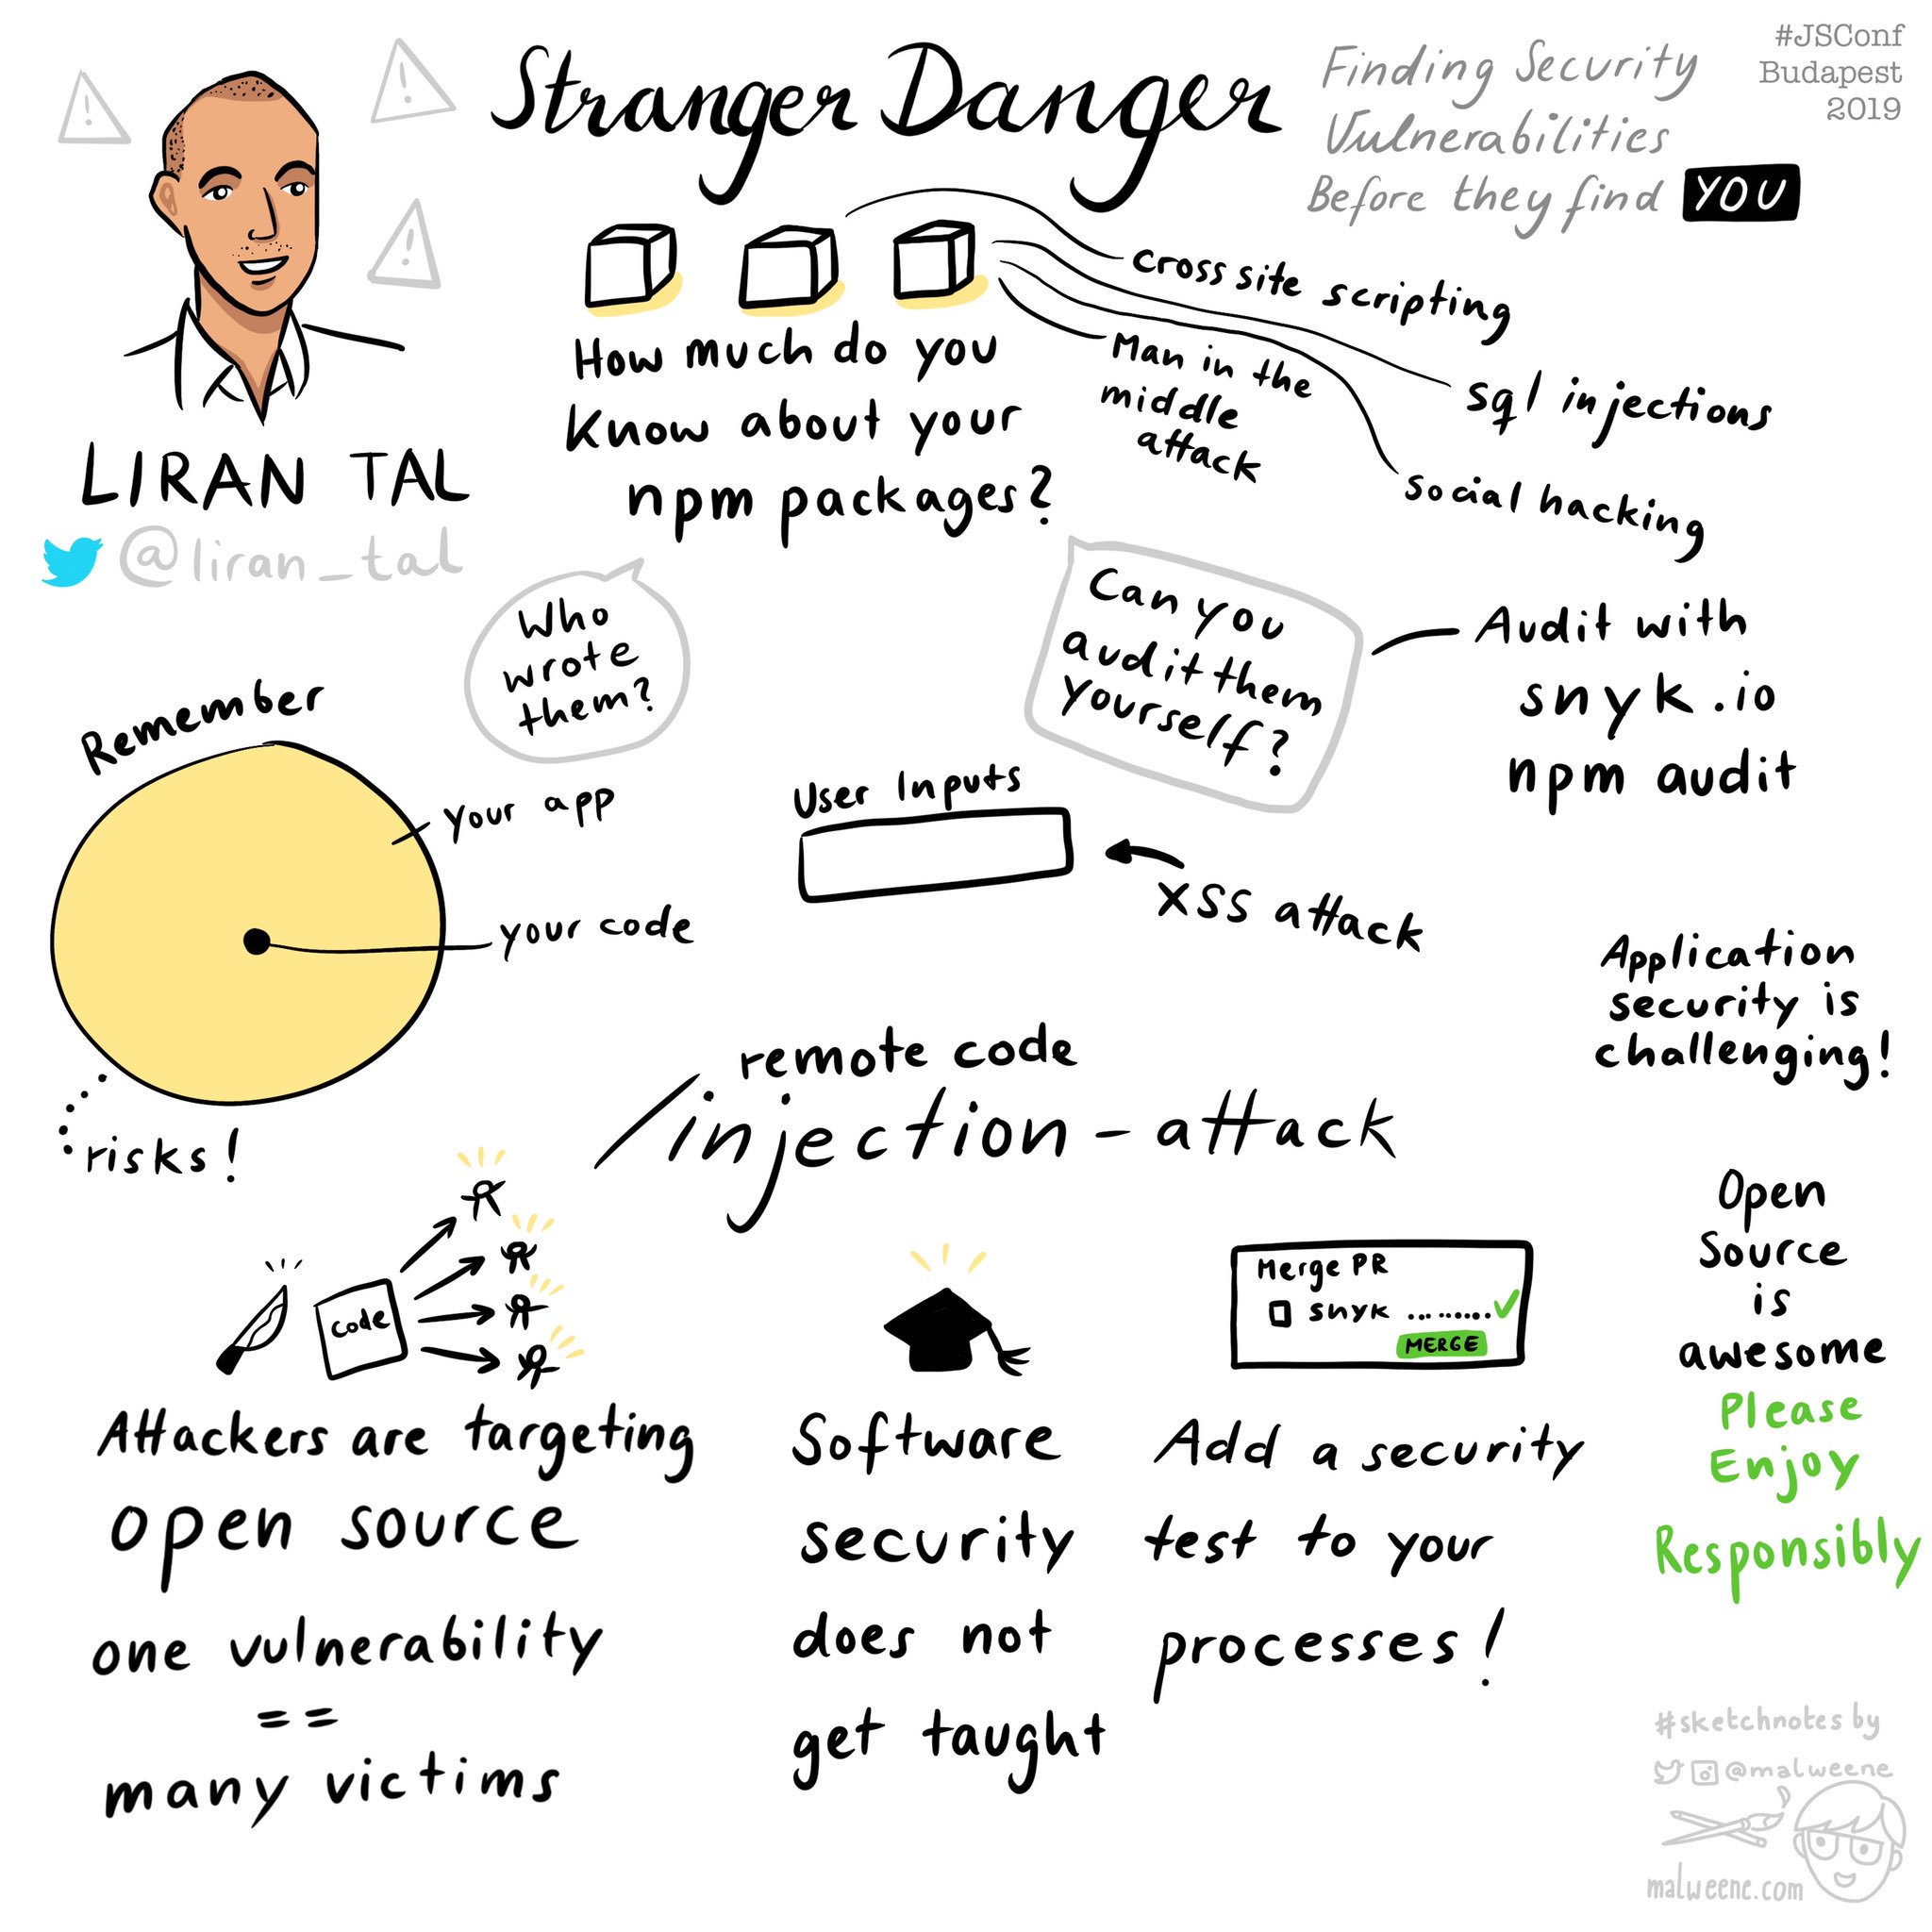 Stranger Danger
Finding Security
Vulnerabilities
Before they find YOU
#JSConf
Budapest
2019
LIRAN TAL
@liran_tal
How much do you
know about your
npm packages?
cross site scripting
sql injections
Man in the
middle
attack
social hacking
Who
wrote
them?
Can you
audit them
yourself?
Audit with
snyk.io
npm audit
Remember
your app
your code
risks!
User Inputs
XSS attack
Application
security is
challenging!
remote code
injection-attack
code
Attackers are targeting
open source
one vulnerability
==
many victims
Software
security
does not
get taught
Merge PR
snyk .........
MERGE
Add a security
test to your
processes!
Open
Source
is
awesome
Please
Enjoy
Responsibly
#sketchnotes by
@malweene
malweene.com